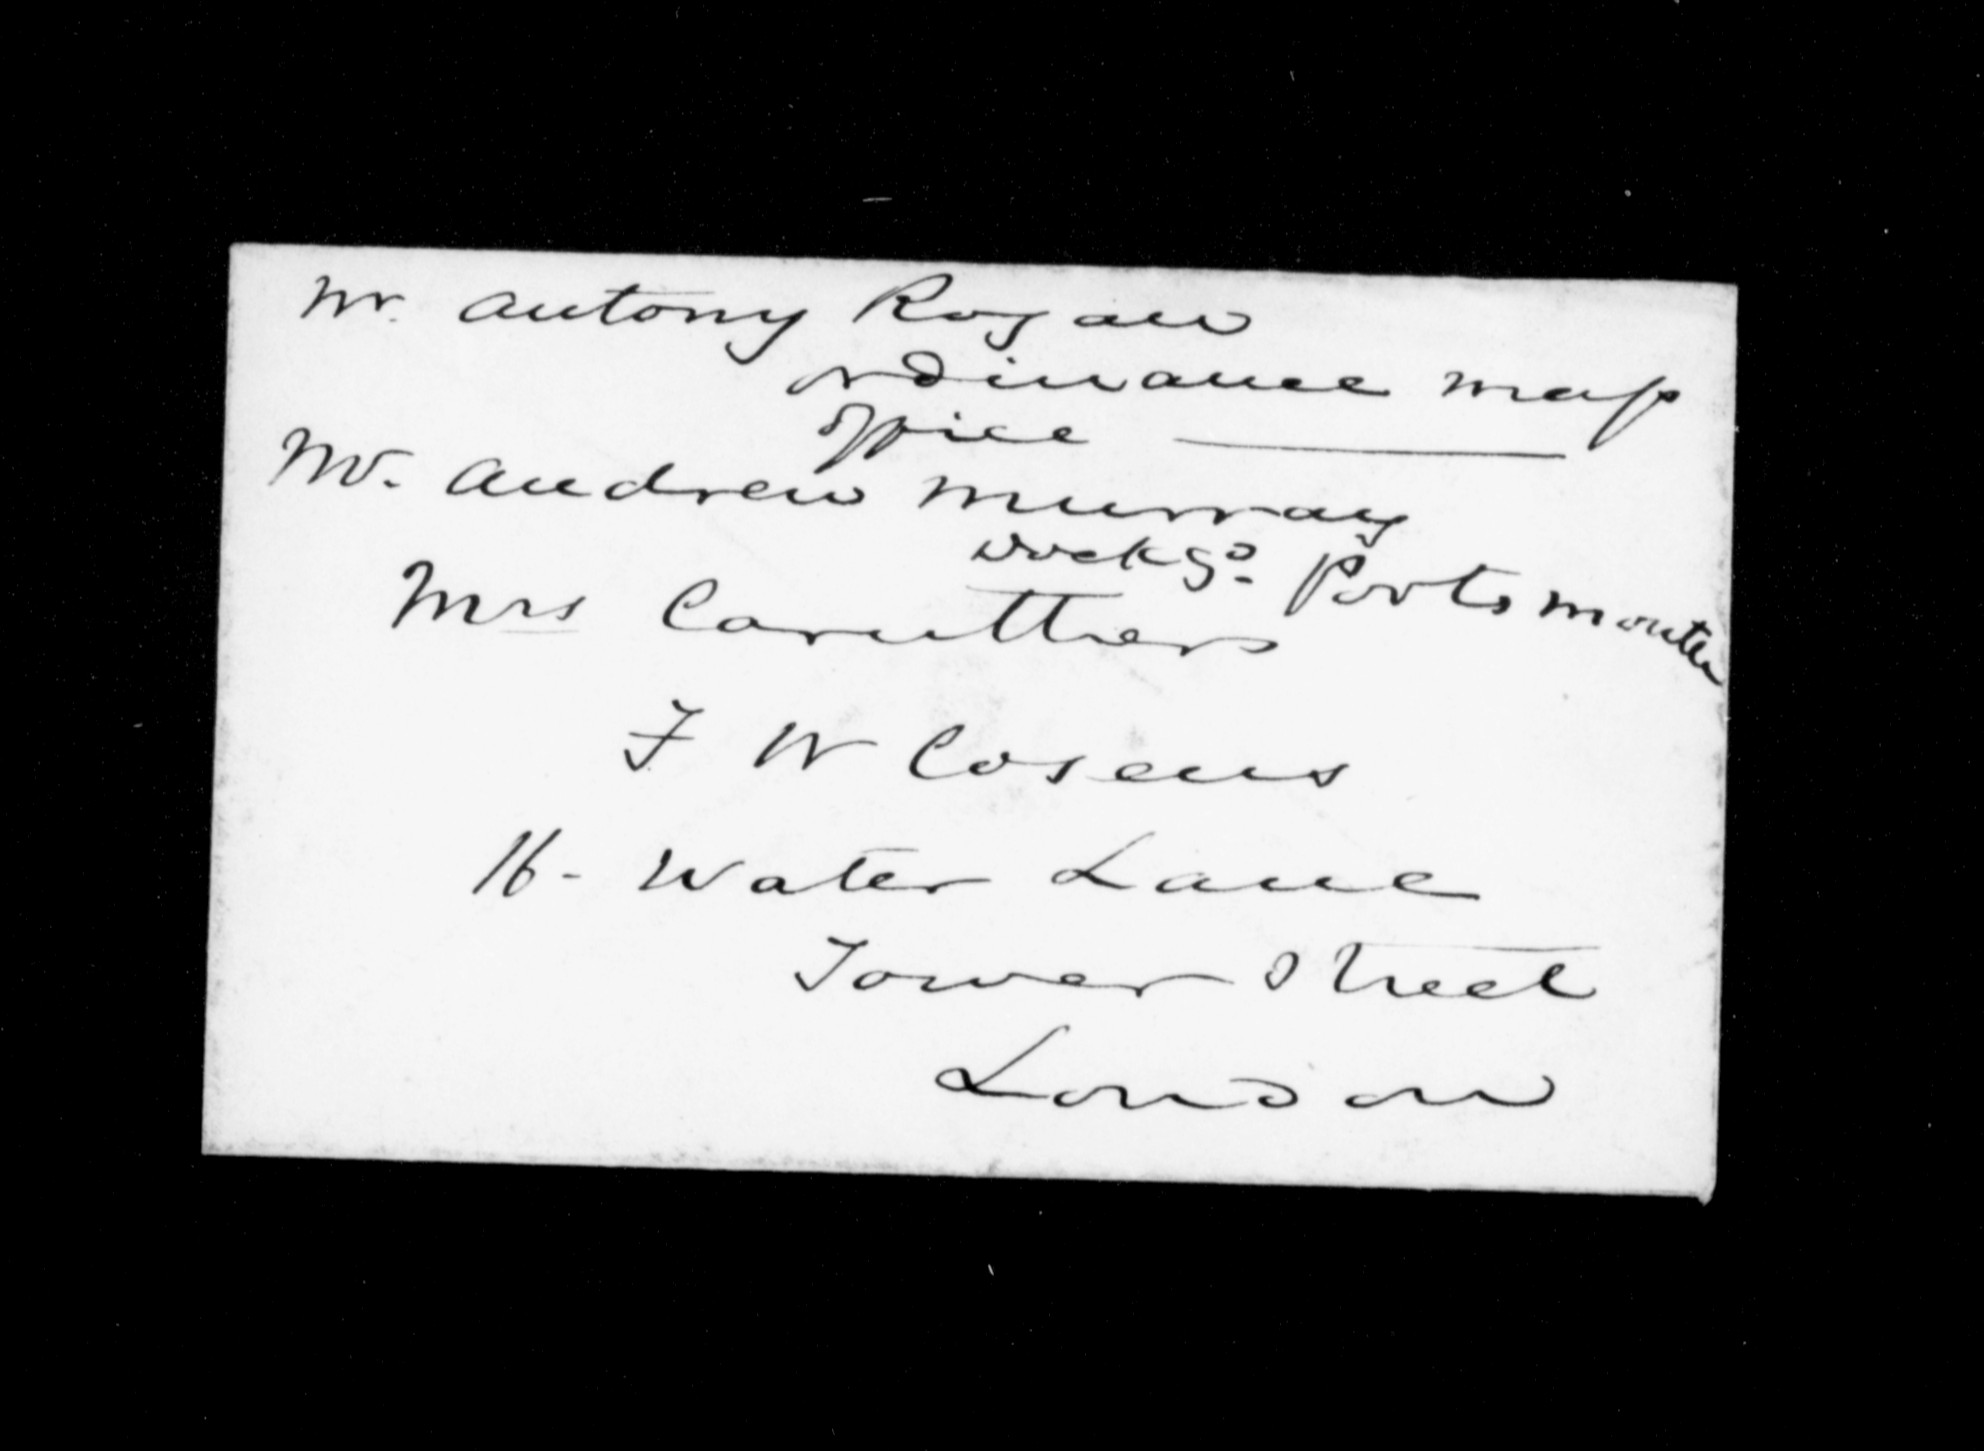 Mr. Antony Rogan
Ordinance Map
Office
Mr. Andrew Murray
Dockyd. Portsmouth
Mrs Caruthers
F W Cosens
16 - Water Lane
Tower Street
London